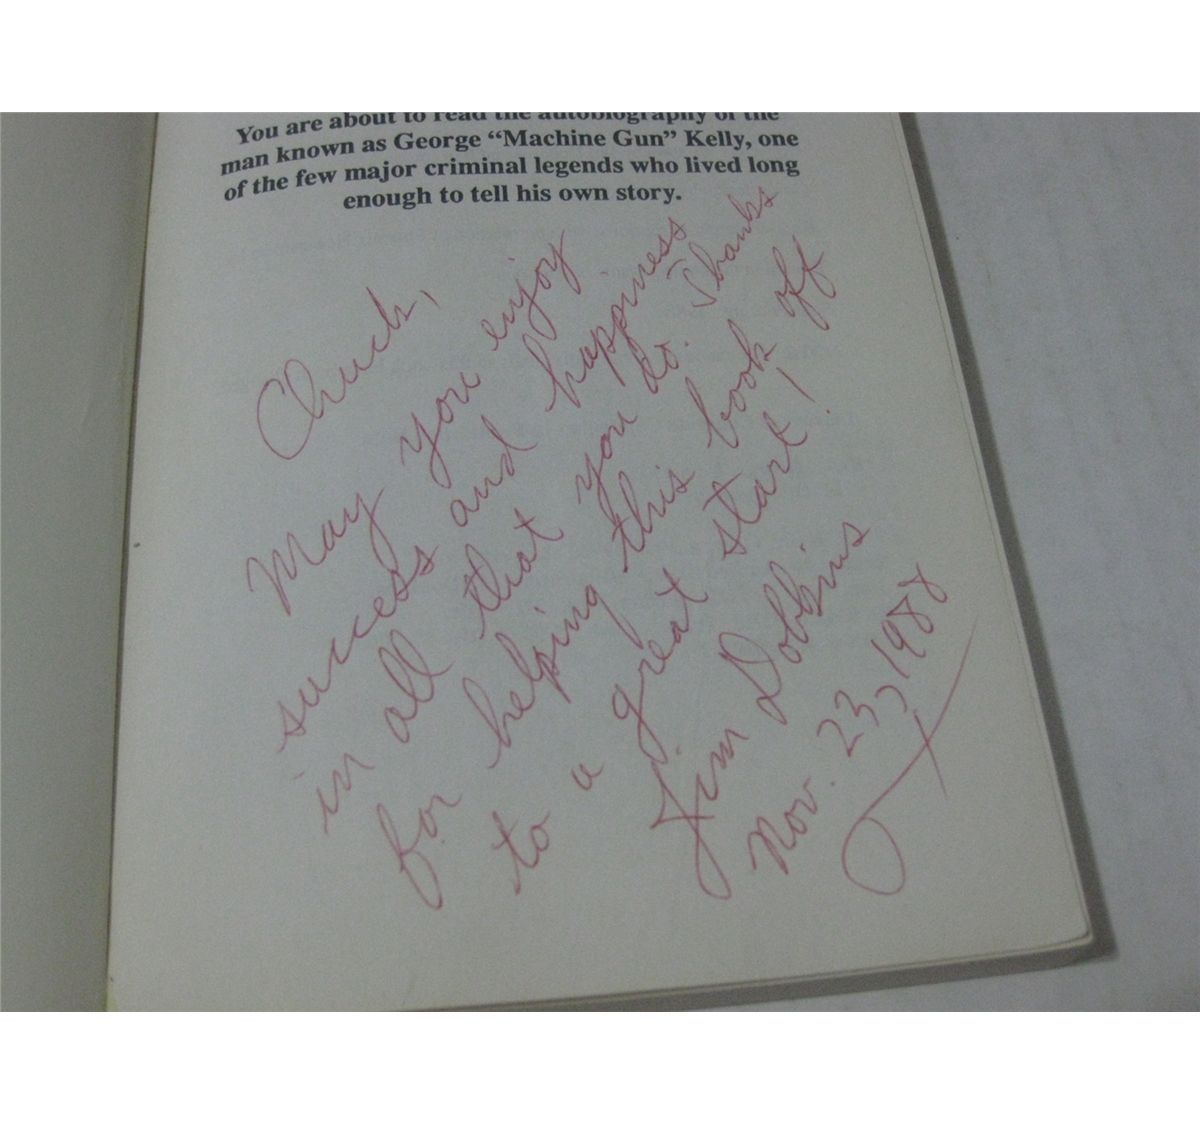 You are about to read the autobiography of the
man known as George “Machine Gun” Kelly, one
of the few major criminal legends who lived long
enough to tell his own story.
Chuck,
May you enjoy
success and happiness
in all that you do. Thanks
for helping this book off
to a great start!
Jim Dobbins
Nov. 23, 1988